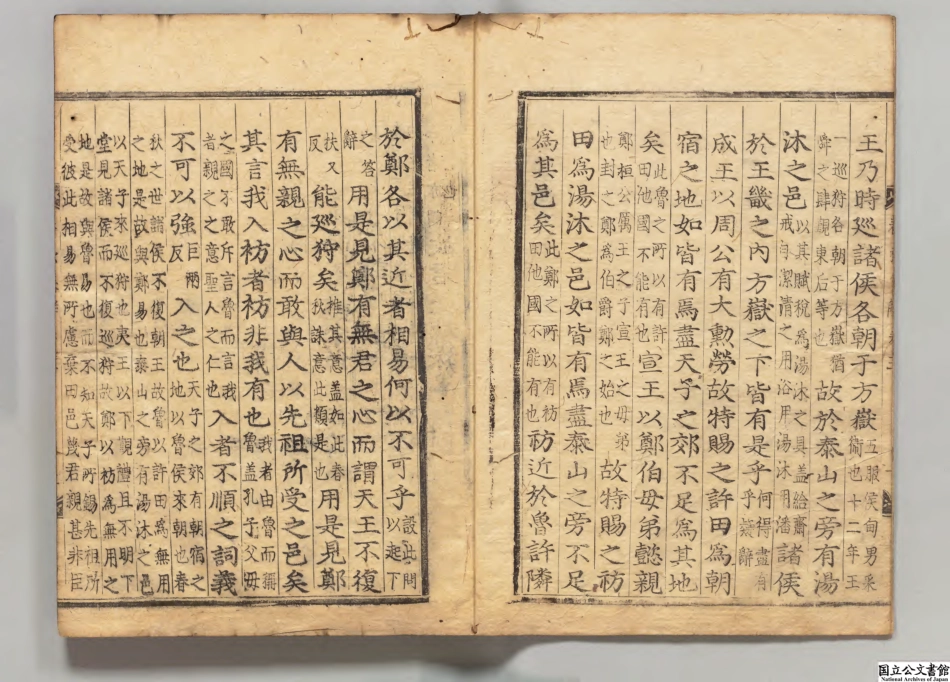 王乃時巡諸侯各朝于方嶽五服侯甸男采衛也十二年王
一巡狩各朝于方嶽猶舜之肆覲東后等也故於泰山之旁有湯
沐之邑以其賦稅為湯沐之具蓋給齋戒自潔清之用浴用湯沐用潘諸侯
於王畿之內方嶽之下皆有是乎何得盡有乎辭
成王以周公有大勳勞故特賜之許田爲朝
宿之地如皆有焉盡天子之郊不足爲其地
矣此魯之所以有許田他國不能有也宣王以鄭伯母弟懿親
鄭桓公厲王之子宣王之母弟也封之鄭為伯爵鄭之始也故特賜之祊
田爲湯沐之邑如皆有焉盡泰山之旁不足
爲其邑矣此鄭之所以有祊田他國不能有也祊近於魯許隣
於鄭各以其近者相易何以不可乎設此問以起下
之答辭用是見鄭有無君之心而謂天王不復
扶又反能巡狩矣推其意蓋如此春秋誅意此類是也用是見鄭
有無親之心而敢與人以先祖所受之邑矣
其言我入祊者祊非我有也我者由魯而稱魯蓋孔子父母
之國不敢斥言魯而言我者親之之意聖人之仁也入者不順之詞義
不可以強巨兩反入之也天子之郊有朝宿之地以魯侯來朝也春
秋之世諸侯不復朝王故魯以許田爲無用之地是故與鄭易也泰山之旁有湯沐之邑
以天子來巡狩也夷王以下觀禮且不明下堂見諸侯而不復巡狩故鄭以祊為無用之
地是故與魯易也而不知天子所錫先祖所受彼此相易無所慮棄田邑幾君親甚非臣
国立公文書館
National Archives of Japan